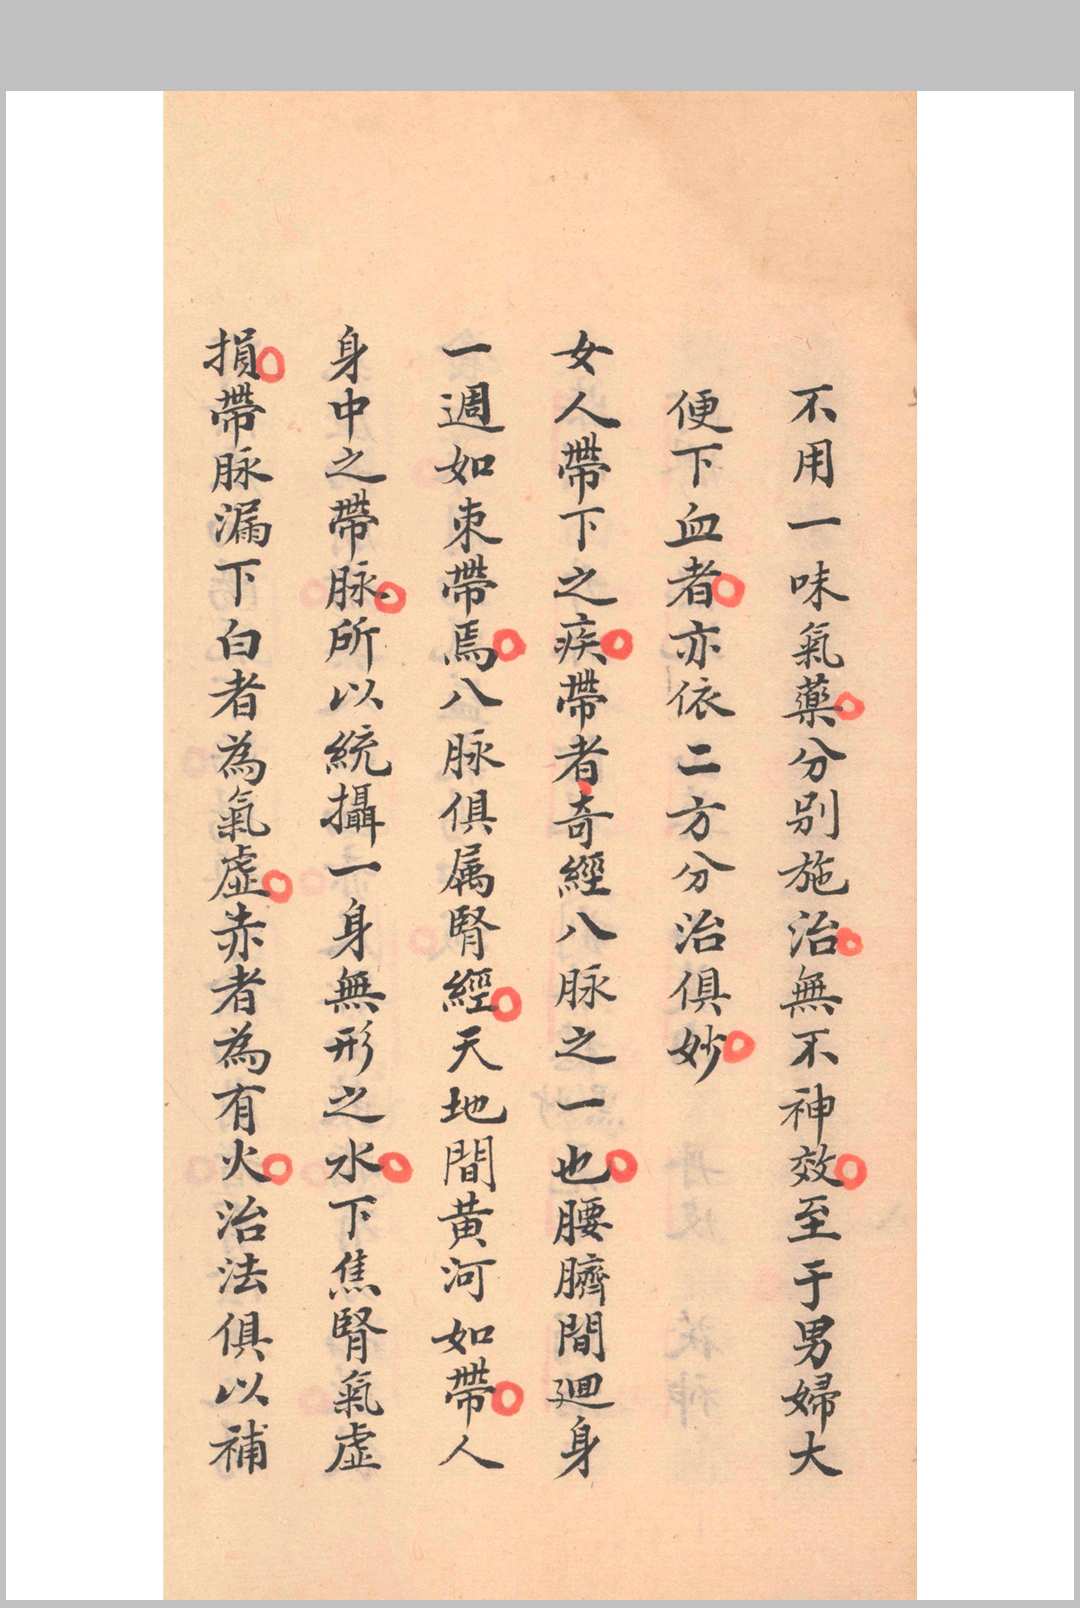 不用一味氣藥分别施治無不神效至于男婦大
便下血者亦依二方分治俱妙
女人帶下之疾帶者奇經八脉之一也腰臍間迴身
一週如束帶焉八脉俱属腎經天地間黃河如帶人
身中之帶脉所以統攝一身無形之水下焦腎氣虛
損帶脉漏下白者為氣虛赤者為有火治法俱以補